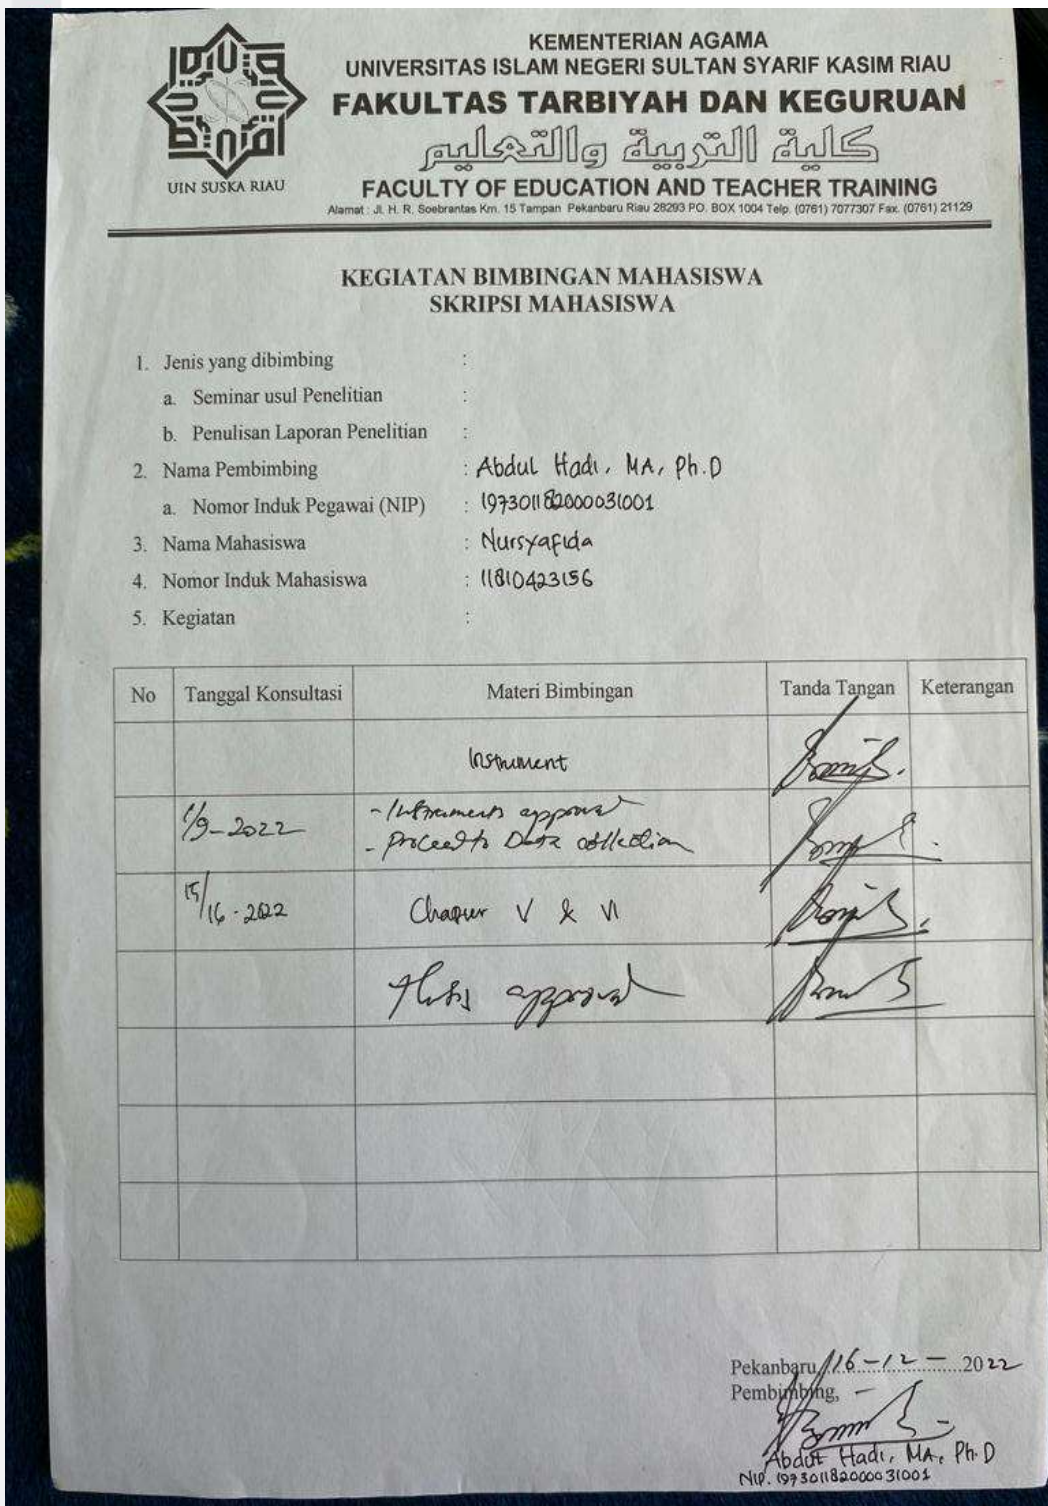 UIN SUSKA RIAU
KEMENTERIAN AGAMA
UNIVERSITAS ISLAM NEGERI SULTAN SYARIF KASIM RIAU
FAKULTAS TARBIYAH DAN KEGURUAN
كلية التربية والتعليم
FACULTY OF EDUCATION AND TEACHER TRAINING
Alamat : Jl. H. R. Soebrantas Km. 15 Tampan Pekanbaru Riau 28293 PO. BOX 1004 Telp. (0761) 7077307 Fax. (0761) 21129
KEGIATAN BIMBINGAN MAHASISWA
SKRIPSI MAHASISWA
1. Jenis yang dibimbing :
a. Seminar usul Penelitian :
b. Penulisan Laporan Penelitian :
2. Nama Pembimbing : Abdul Hadi, MA, Ph.D
a. Nomor Induk Pegawai (NIP) : 197301182000031001
3. Nama Mahasiswa : Nursyafida
4. Nomor Induk Mahasiswa : 11810423156
5. Kegiatan :
No Tanggal Konsultasi Materi Bimbingan Tanda Tangan Keterangan
Instrument
1/9-2022 - Instruments approval
- Proceed to Data collection
15/16-2022 V & VI
approval
Pekanbaru, 16-12-2022
Pembimbing,
Abdul Hadi, MA, Ph.D
NIP. 197301182000031001